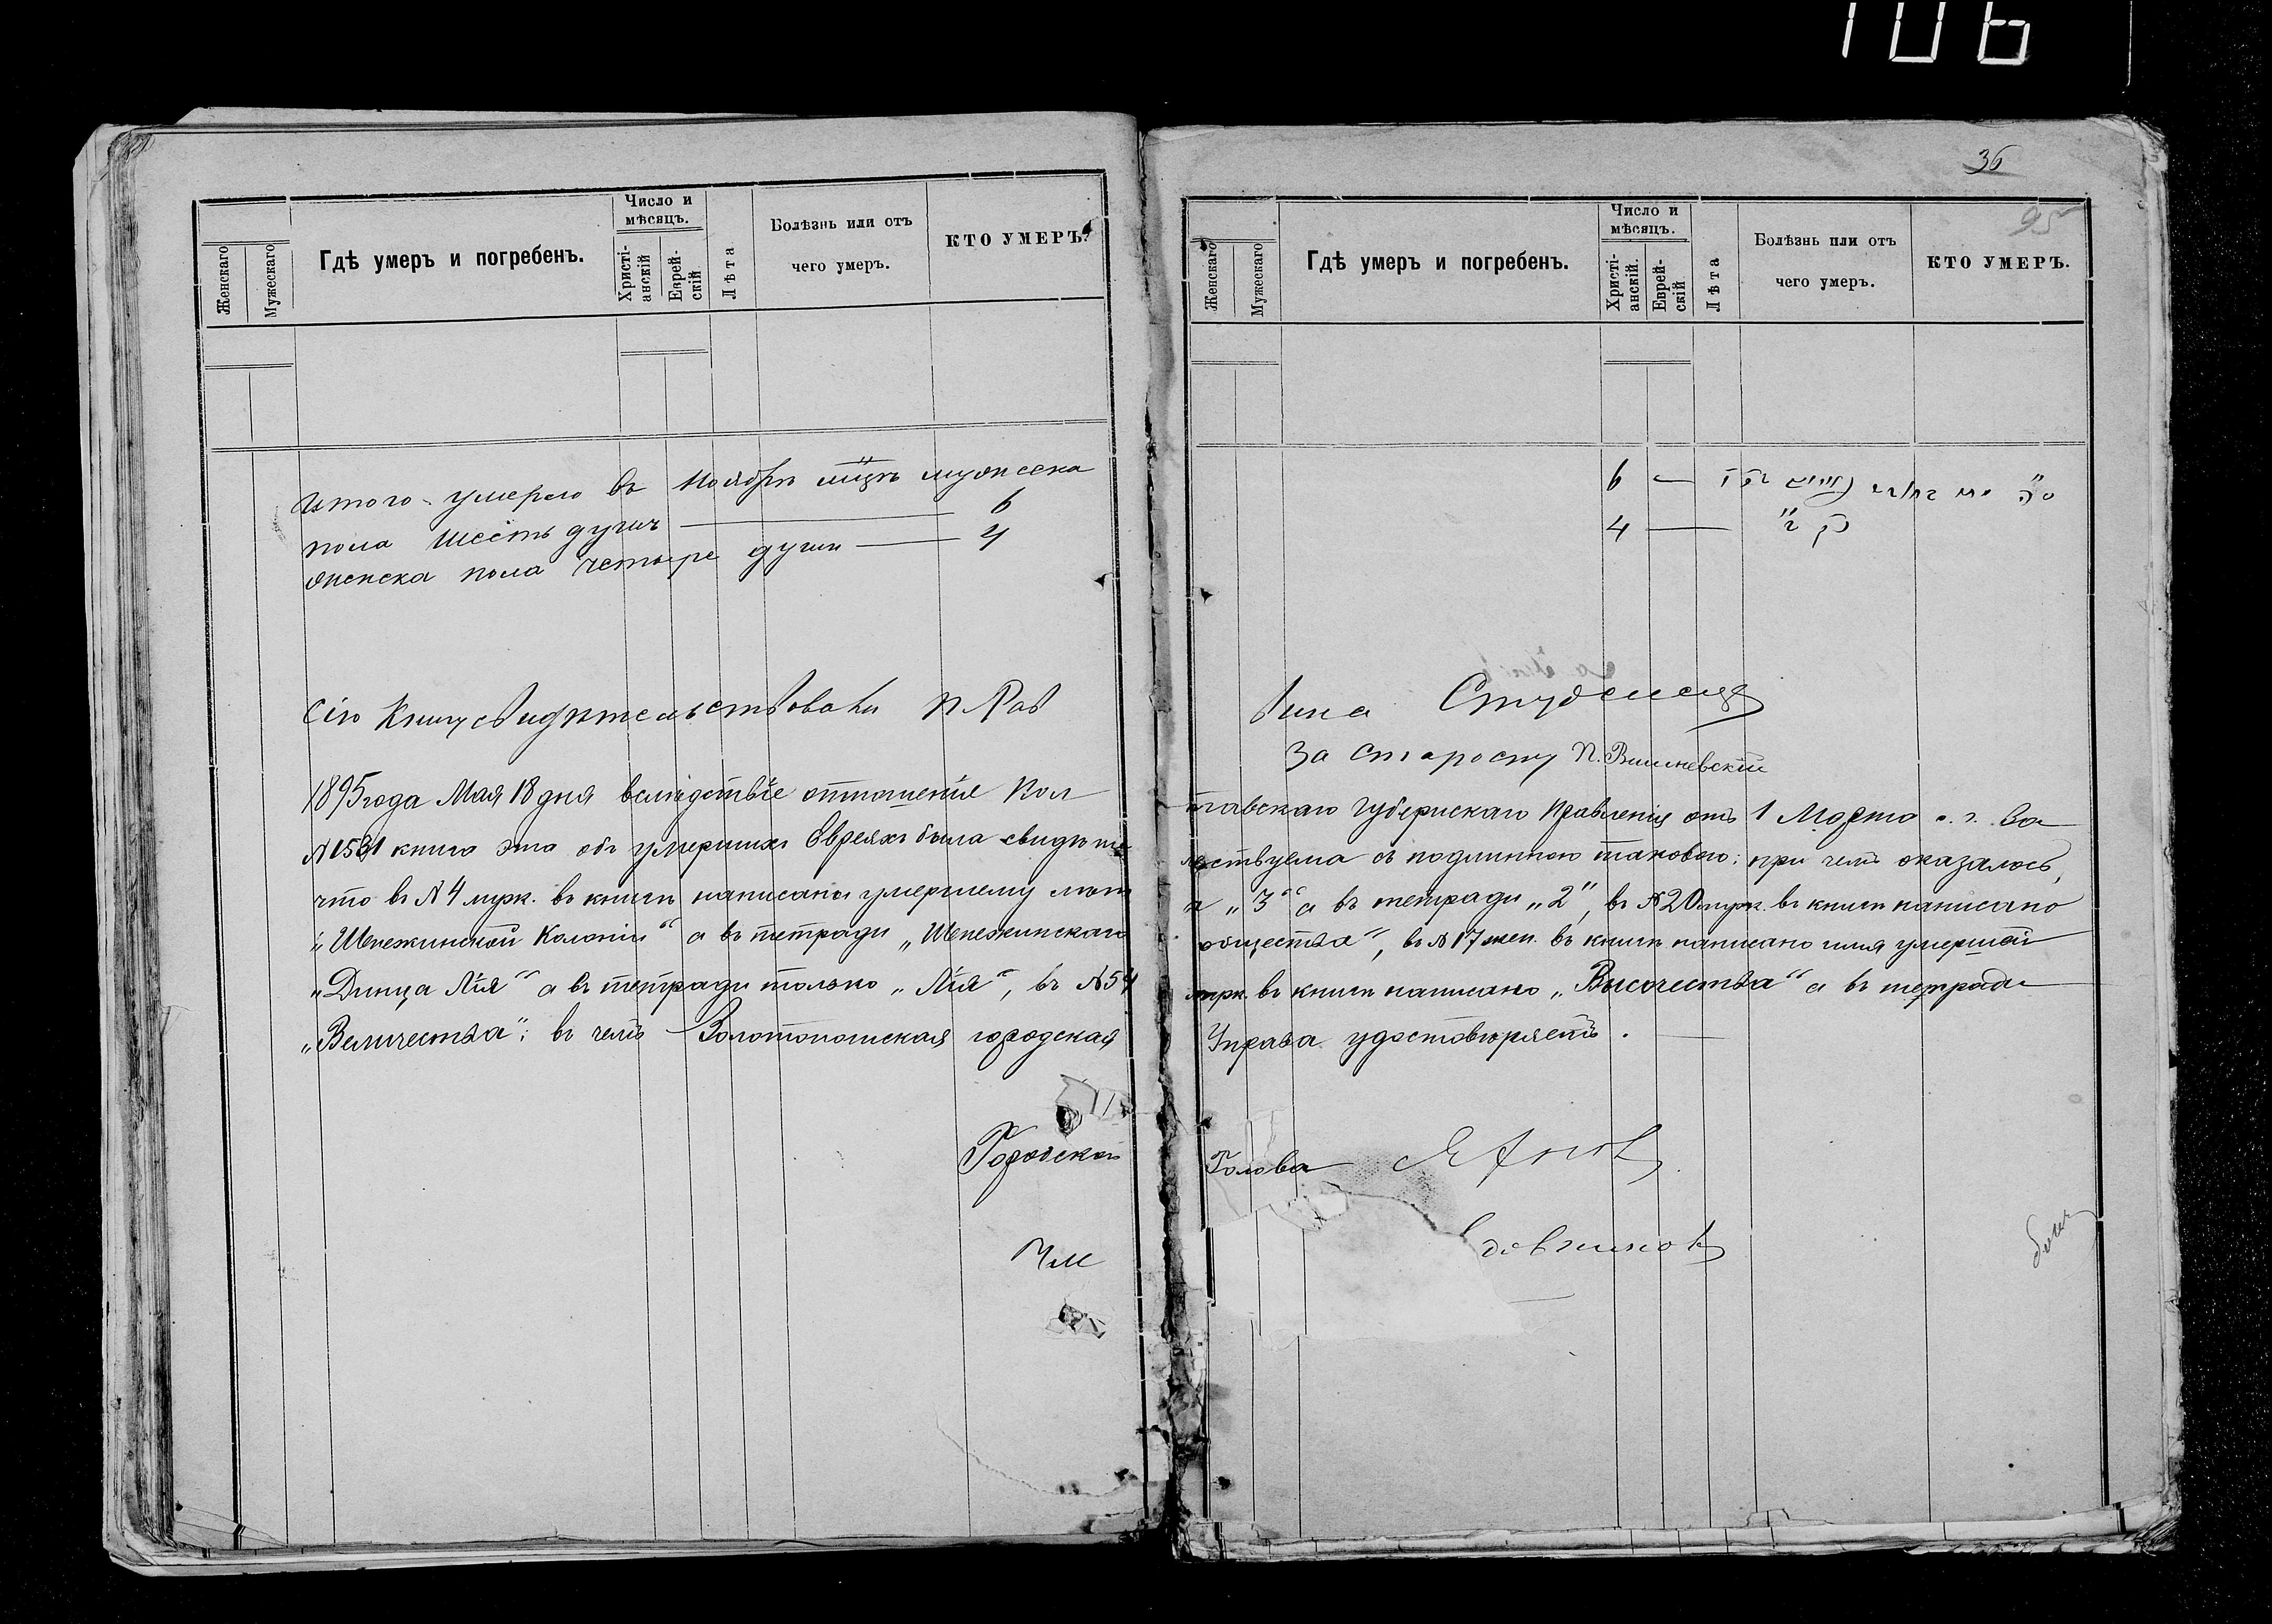 106
36
95
Число и мѣсяцъ.
Женскаго
Мужескаго
Гдѣ умеръ и погребенъ.
Христі-анскій
Еврей-скій
Лѣта
Болѣзнь или отъ чего умеръ.
КТО УМЕРЪ.
Итого умерло въ Ноябрѣ мужеска
пола шесть душъ — 6
женска пола четыре души — 4
Сію Книгу свидѣтельствовали
1895 года Мая 18 дня вслѣдствіе отношенія Пол
книга эта объ умершихъ Евреяхъ была свидѣте
что въ №4 мужк. въ книгѣ написано умершему лѣт
„Шпежинской Колоніи“ а въ тетради „Шпежинскаго
„Динца Лія“ а въ тетради только „Лія“, въ №54
„Величества“; въ чемъ Золотоношская городская
Городской
Чле
Число и мѣсяцъ.
Женскаго
Мужескаго
Гдѣ умеръ и погребенъ.
Христі-анскій.
Еврей-скій
Лѣта
Болѣзнь или отъ чего умеръ.
КТО УМЕРЪ.
6 —
4 —
вина Студенецъ
За старосту П. Вишневскій
тавскаго Губернскаго Правленія отъ 1 Марта с. г. За
льствуема съ подлинною таковою; при чемъ оказалось,
„3“ а въ тетради „2“, въ №20 мужк. въ книгѣ написано
общества“, въ №17 жен. въ книгѣ написано имя умершей
мужк. въ книгѣ написано „Высочества“ а въ тетради
Управа удостовѣряетъ.
Голова